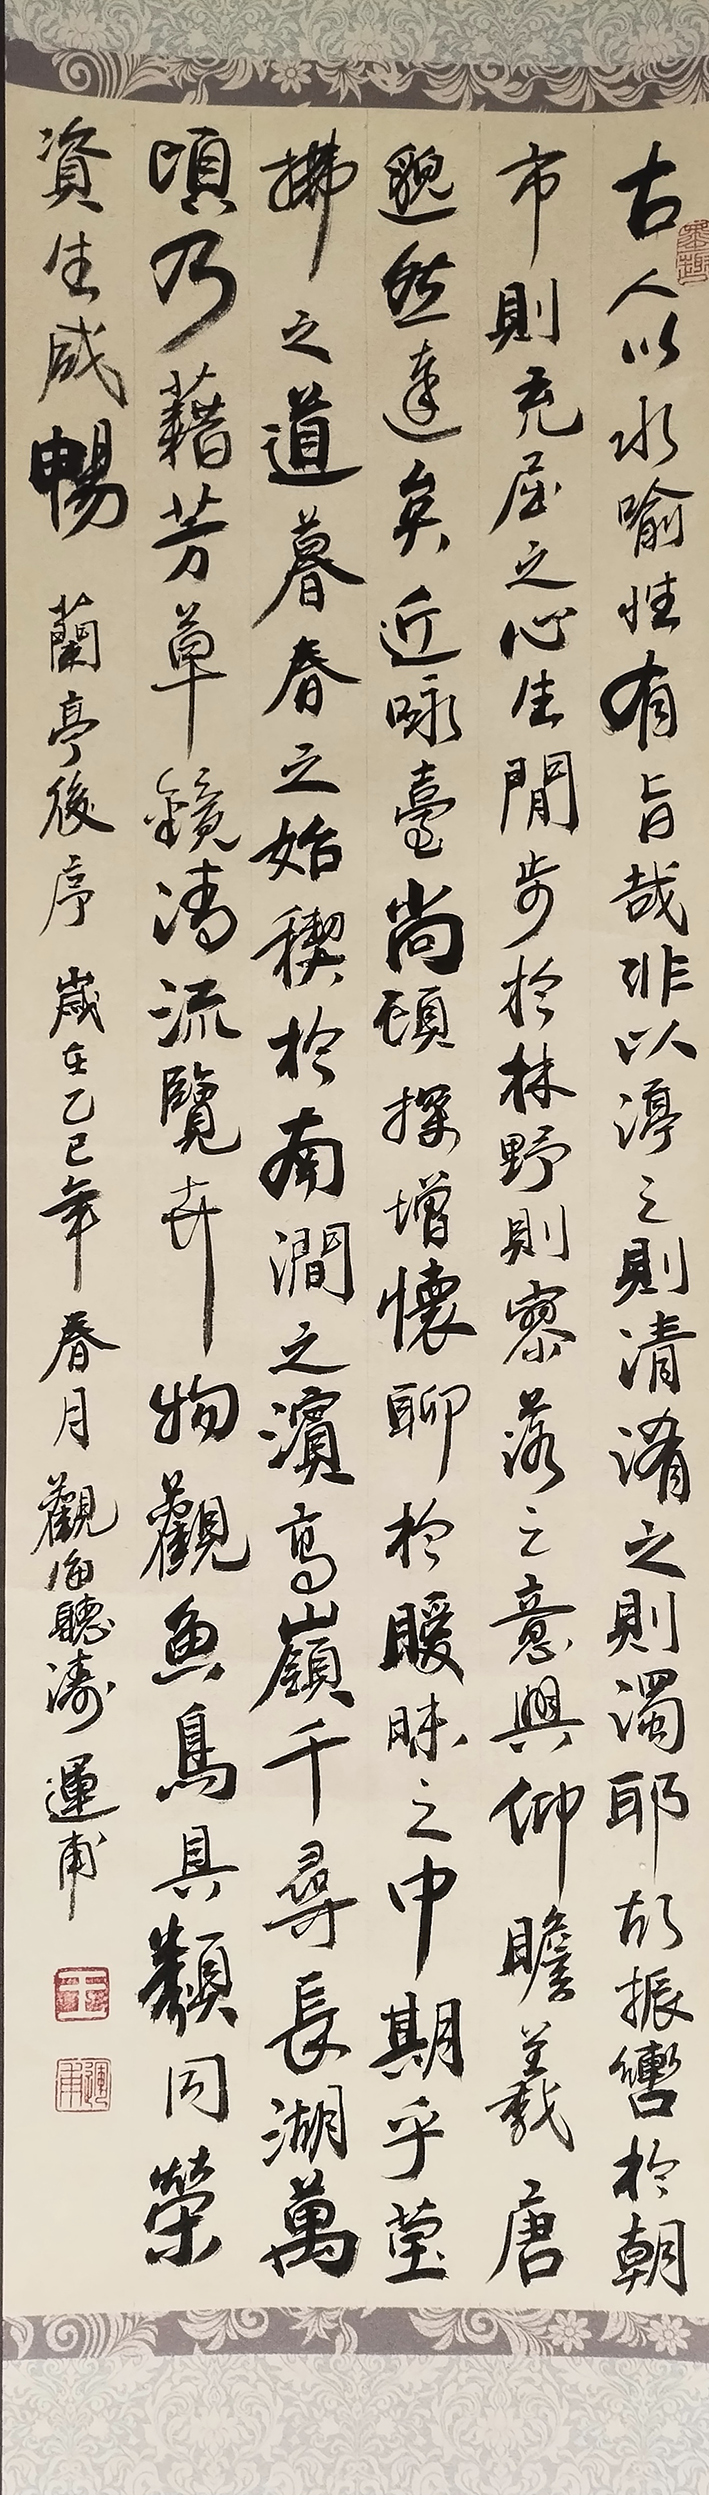 古人以水喻性有旨哉非以渟之則清淆之則濁耶故振轡於朝
市則充屈之心生閒步於林野則寥落之意興仰瞻羲唐
邈然遠矣近咏臺尚顧探增懷聊於曖昧之中期乎瑩
拂之道暮春之始禊於南澗之濱高嶺千尋長湖萬
頃乃藉芳草鏡清流覽卉物觀魚鳥具類同榮
資生咸暢 蘭亭後序 歲在乙巳年春月觀海聽濤運甫
運甫